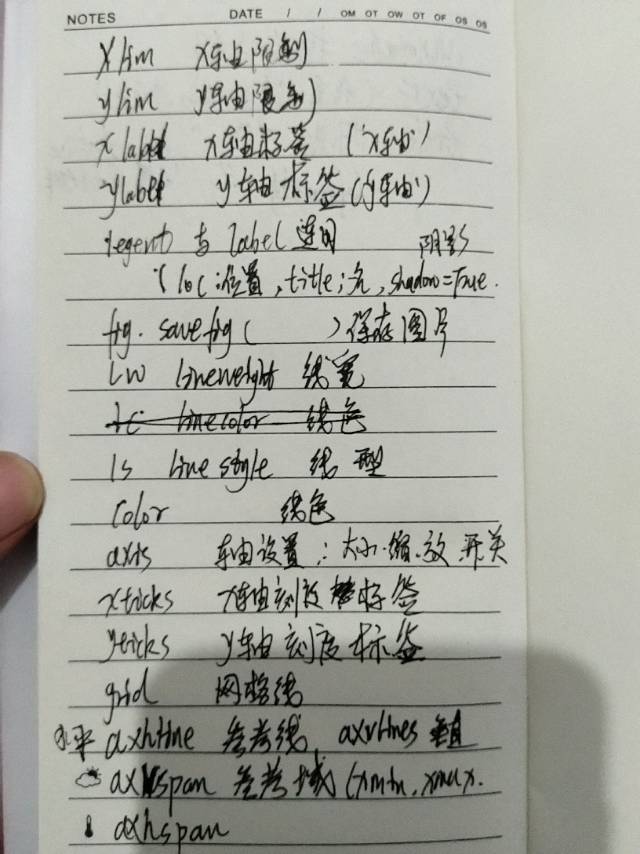 NOTES DATE / / OM OT OW OT OF OS OS
xlim x轴限制
ylim y轴限制
xlabel x轴标签 ('x轴')
ylabel y轴标签 ('y轴')
legent 与 label 连用 阴影
(loc:位置, title:名, shadow=True.
fig. savefig( )保存图片
lw lineweight 线宽
lc linecolor 线色
ls line style 线型
color 线色
axis 轴设置:大小.缩.放 开关
xticks x轴刻度标签
yticks y轴刻度标签
grid 网格线
水平 axhline 参考线, axvlines 垂直
axvspan 参考域 (xmin, xmax.
axhspan